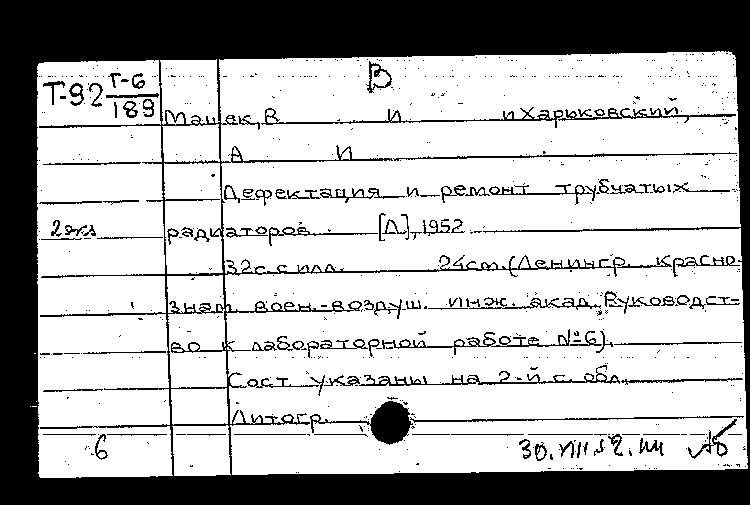 В
Т-92 Т-6
189
Машек, В И и Харьковский,
А И
Дефектация и ремонт трубчатых
2 экз радиаторов. [Л], 1952
32с. с илл. 24cm. (Ленингр. Красно-
знам. воен.-воздуш. инж. акад. Руководст-
во к лабораторной работе №6).
Сост. указаны на 2-й с. обл.
Литогр.
6
30.VIII.52.